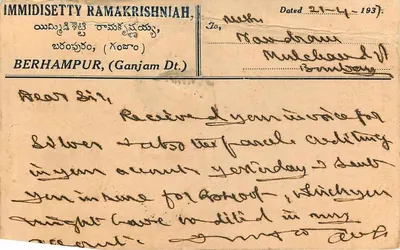 IMMIDISETTY RAMAKRISHNIAH,
ఇమ్మిడిశెట్టి రామకృష్ణయ్య,
బరంపురం, (గంజాం)
BERHAMPUR, (Ganjam Dt.)
Dated 21-4-193
To,
Nandram
Mulchand
Bombay
Dear Sir,
Received your invoice for
Silver & also the parcel crediting
in your account yesterday I sent
you in sure for , which you
might have credited in my
account.